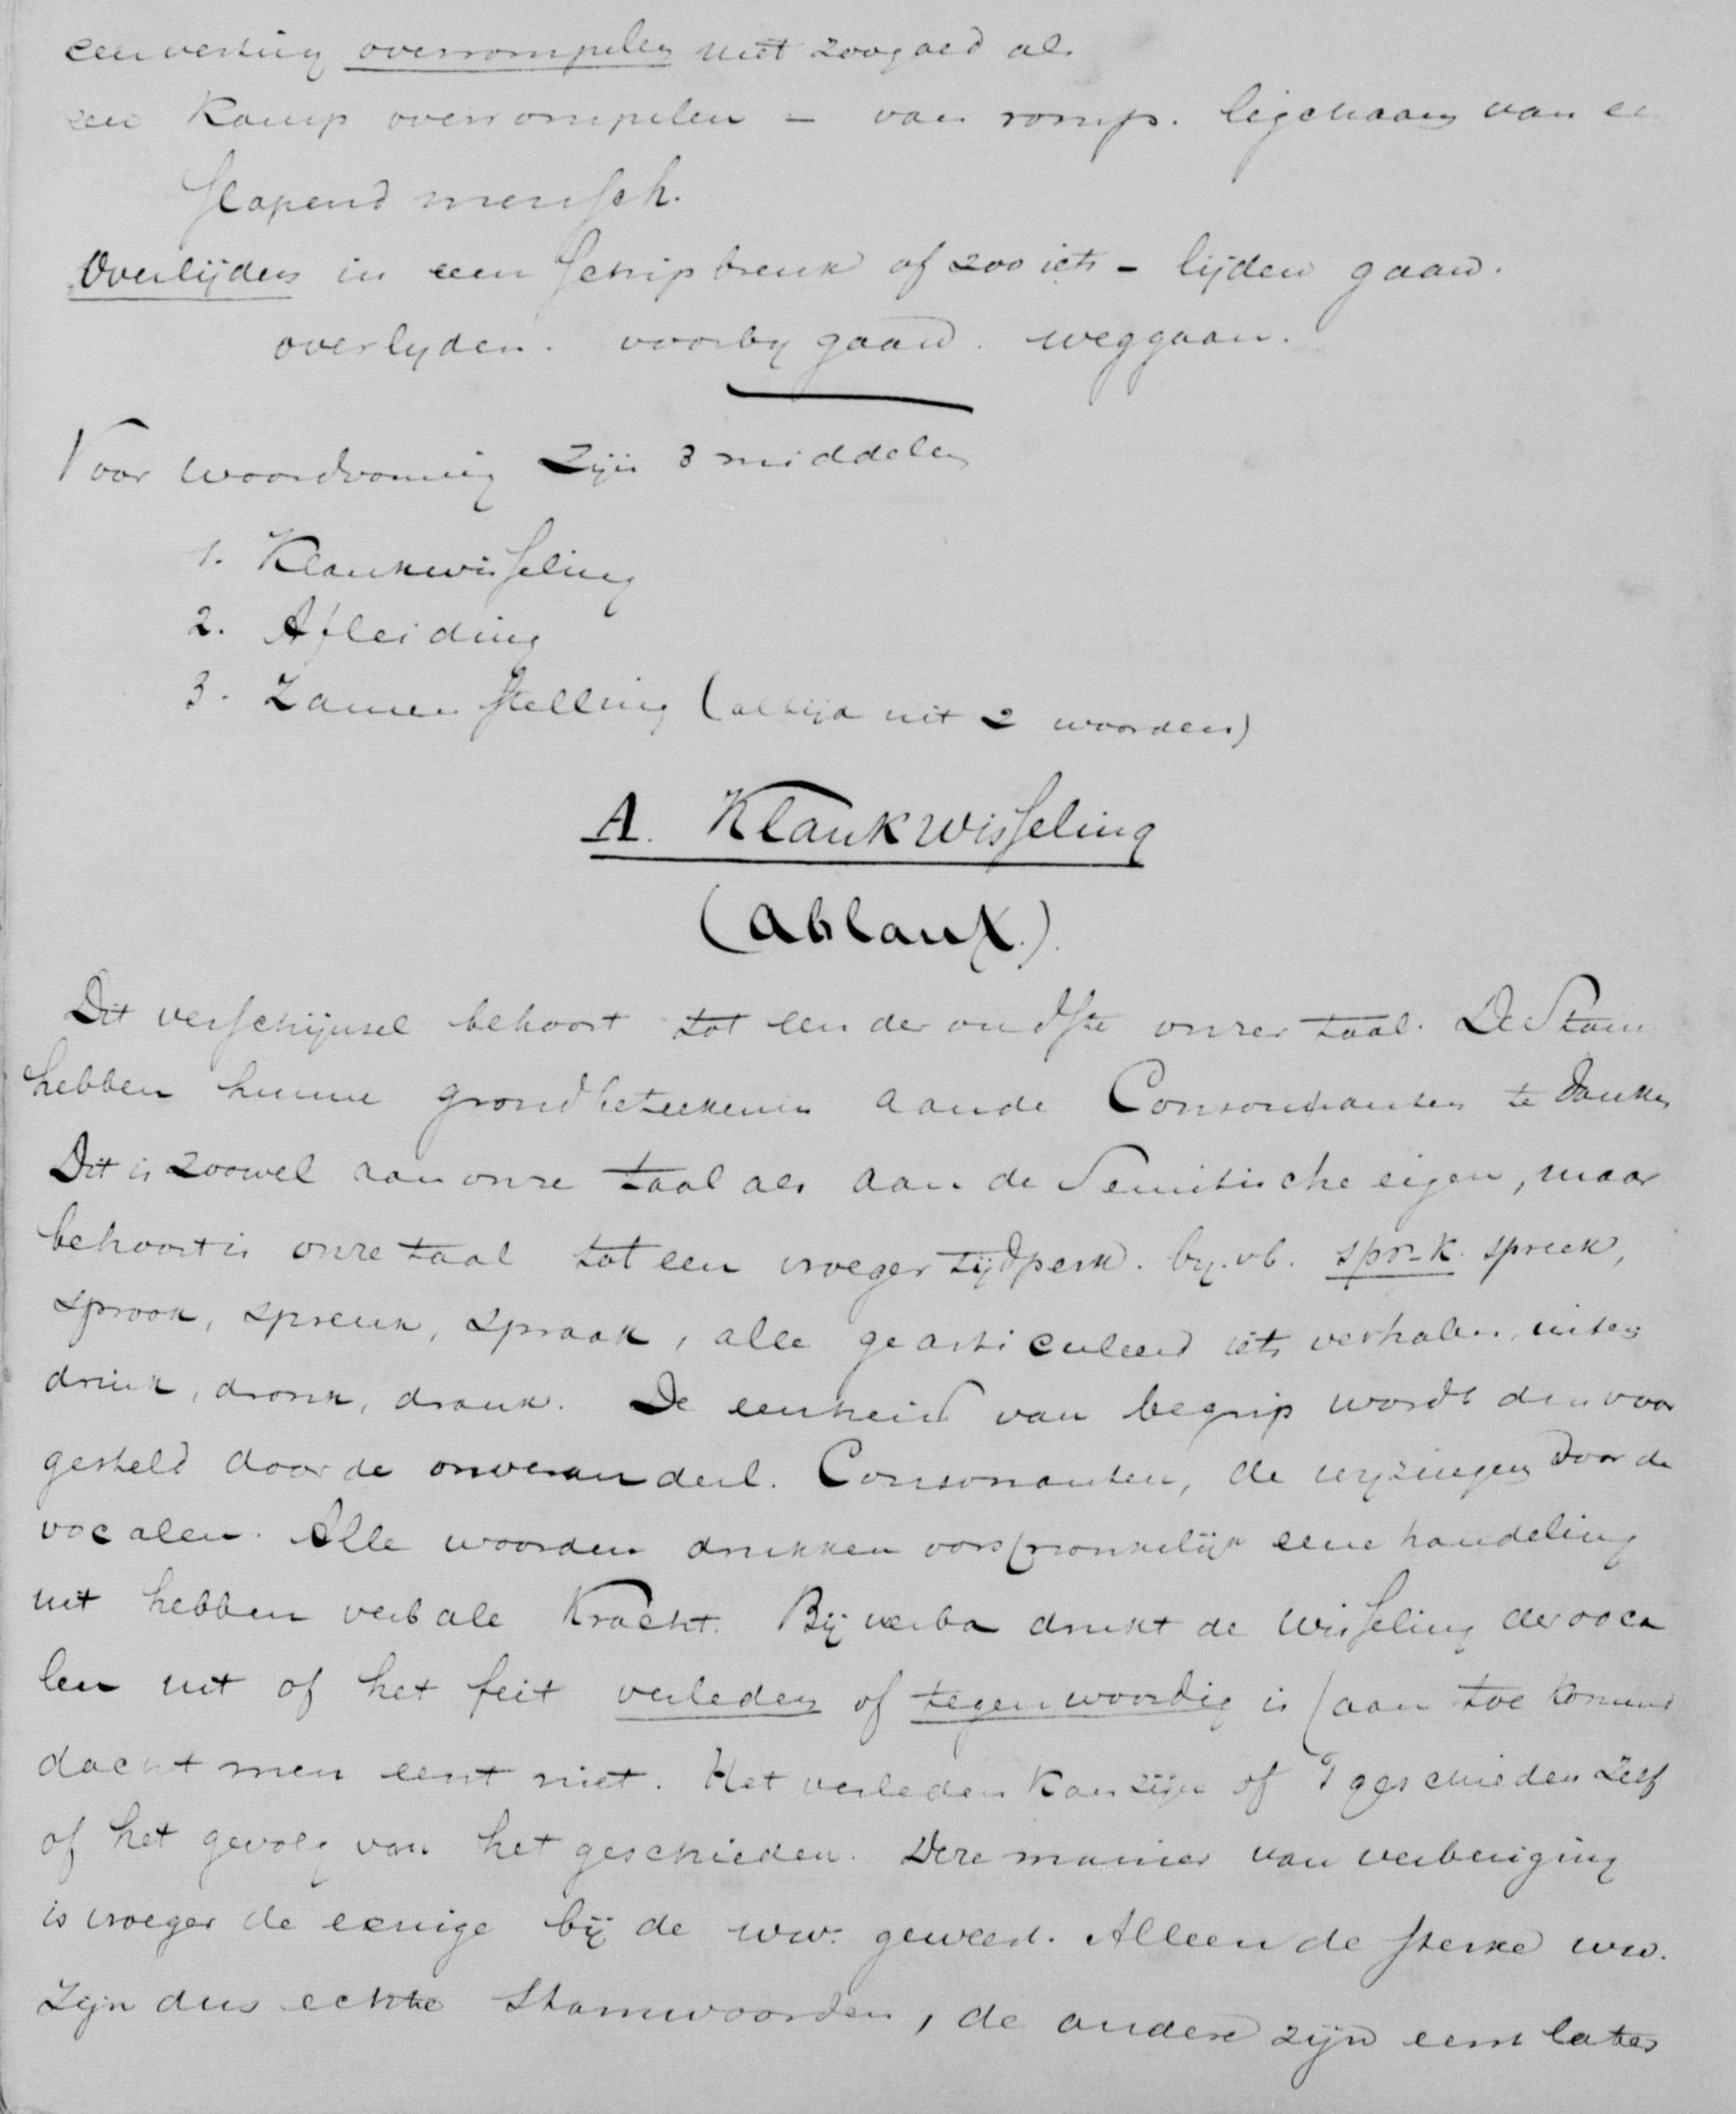 een vesting overrompelen niet zoogoed als
een Kamp overrompelen – van romp. ligchaam van een
slapend mensch.
Overlijden in een schipbreuk of zoo iets – lijden gaan.
overlyden. voorby gaan. weggaan.
Voor woordvorming zijn 3 middelen
1. Klankwisseling
2. Afleiding
3. Zamenstelling (altijd uit 2 woorden)
A. Klankwisseling
(Ablaut.)
Dit verschijnsel behoort tot een der oudste onzer taal. De Stam
hebben hunne grondbeteekenis aan de Consonanten te danken
Dit is zoowel aan onze taal als aan de Semitische eigen, maar
behoort in onze taal tot een vroeger tijdperk. by. vb. spr-k. spreek,
sprook, spreuk, spraak, alle gearticuleerd iets verhalen, uiten
drink, dronk, drank. De eenheid van begrip wordt dus voor
gesteld door de onveranderl. Consonanten, de wyzingen door de
vocalen. Alle woorden drukken oorspronkelijk eene handeling
uit hebben verbale Kracht. Bij verba drukt de wisseling der voca
len uit of het feit verleden of tegenwoordig is (aan toekomend
dacht men eerst niet. Het verleden kan zijn of 't geschieden zelf
of het gevolg van het geschieden. Deze manier van verbuiging
is vroeger de eenige bij de ww. geweest. Alleen de sterke ww.
zijn dus echte Stamwoorden, de andere zijn eerst later